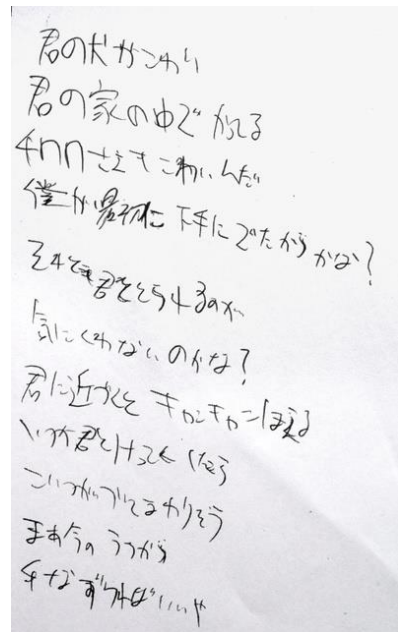 君の犬がこわい
君の家の中でかってる
チワワさえもこわいんだ
僕が最初に下手にでたからかな?
それとも君をとられるのが
気にくわないのかな?
君に近づくと キャンキャンほえる
いつか君とけっこんしたら
こいつがついてまわりそう
まあ今のうちから
手なずければいいや